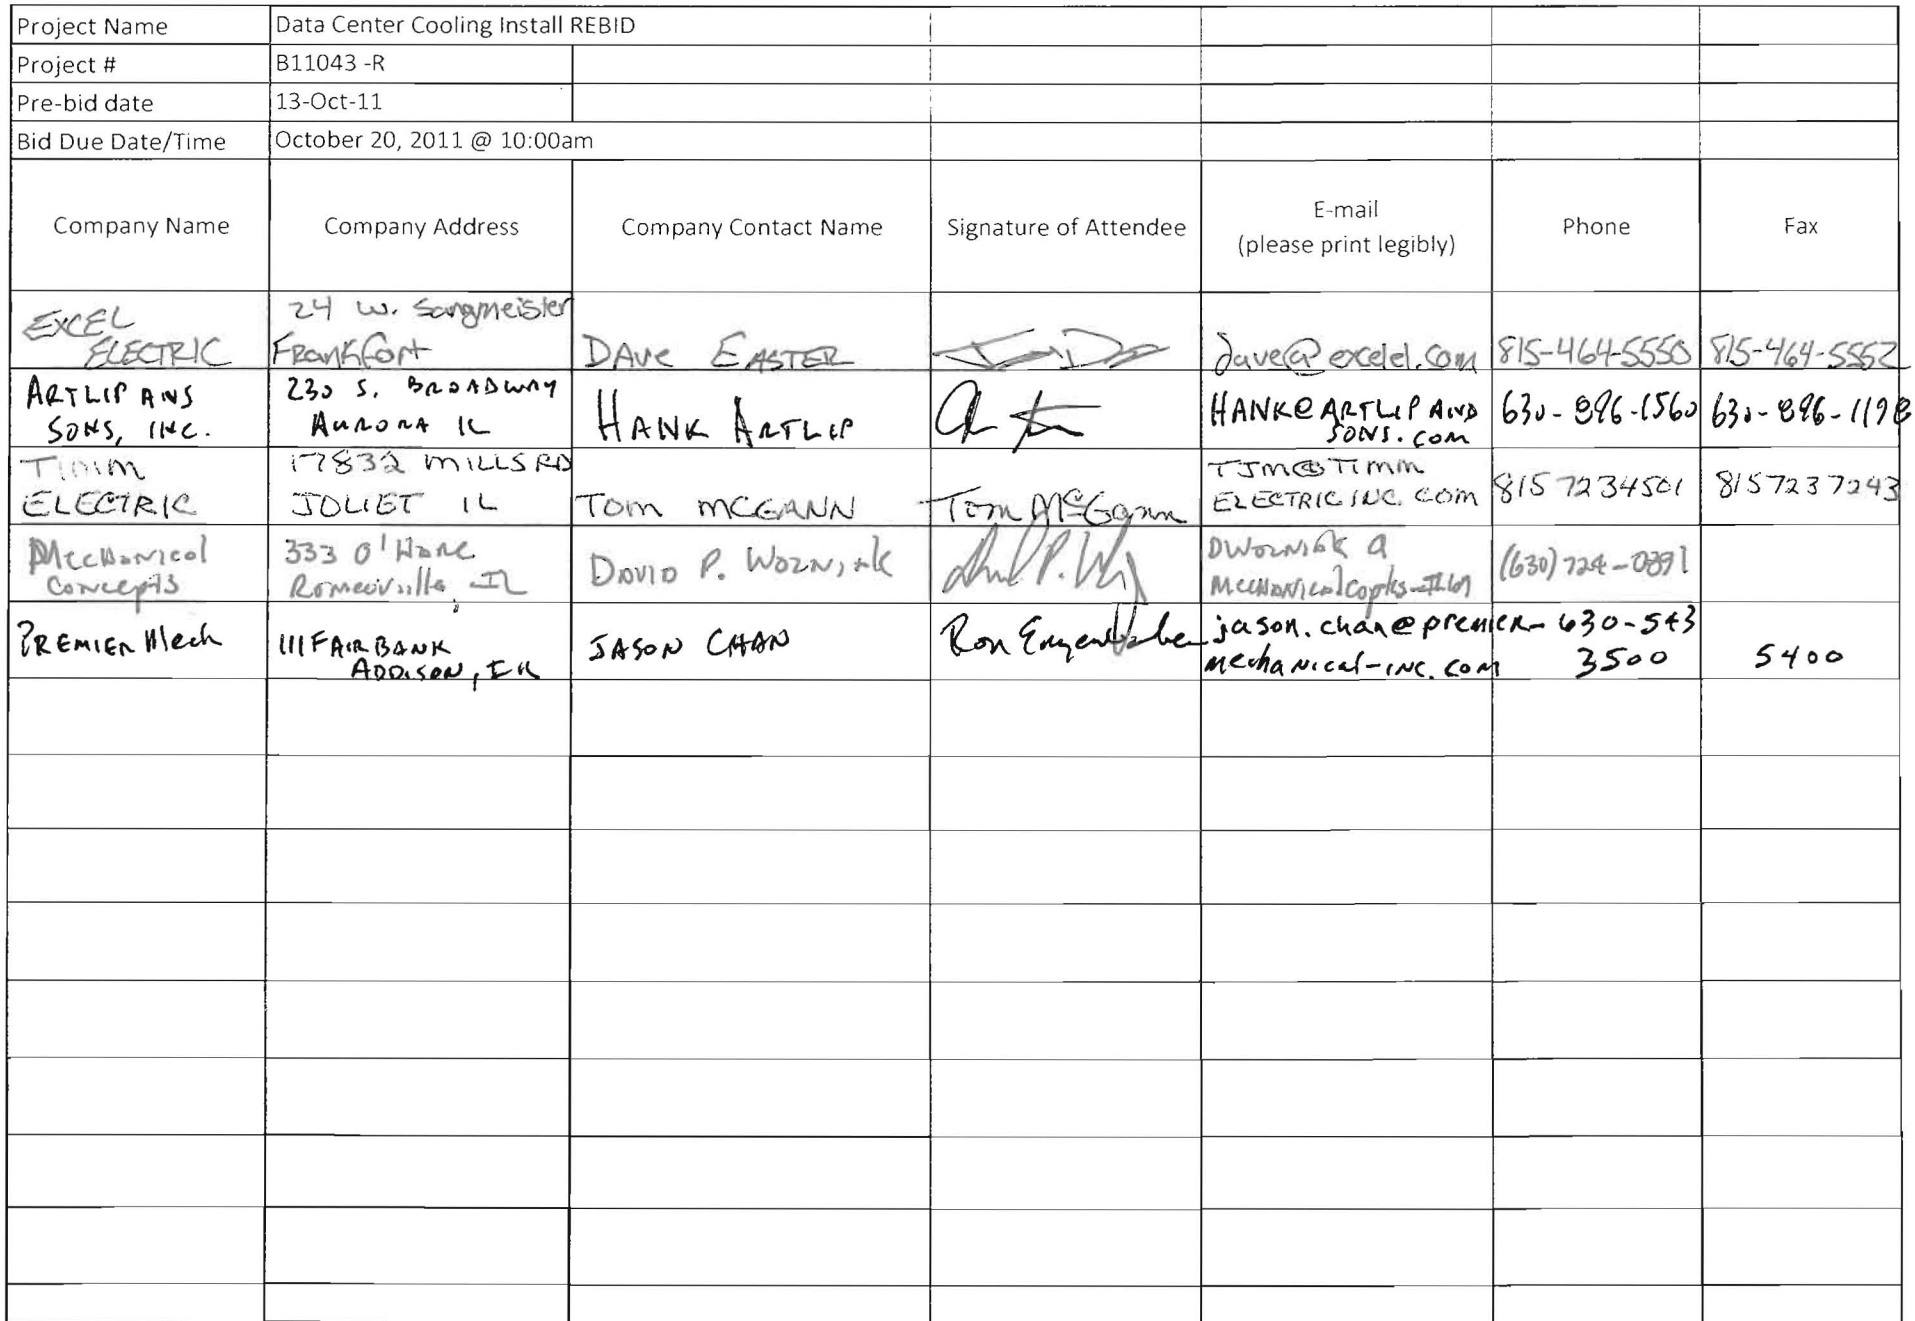 Project Name Data Center Cooling Install REBID
Project # B11043 -R
Pre-bid date 13-Oct-11
Bid Due Date/Time October 20, 2011 @ 10:00am
Company Name Company Address Company Contact Name Signature of Attendee E-mail (please print legibly) Phone Fax
EXCEL
ELECTRIC
24 W. Sangmeister
Frankfort
DAVE EASTER
dave@excelel.com
815-464-5550
815-464-5552
ARTLIP ANS
SONS, INC.
230 S. BROADWAY
AURORA IL
HANK ARTLIP
HANK@ARTLIPAND
SONS.COM
630-896-1560
630-896-1198
TIMM
ELECTRIC
17832 MILLS RD
JOLIET IL
TOM MCGANN
Tom McGann
TJM@TIMM
ELECTRICINC.COM
815 7234501
8157237243
Mechanical
Concepts
333 O'Hare
Romeoville, IL
DAVID P. WOZNIAK
DWOZNIAK @
(630) 724-0391
PREMIER Mech
111 FAIRBANK
ADDISON, IL
JASON CHAN
Ron
jason.chan@premier-
mechanical-inc.com
630-543
3500
5400